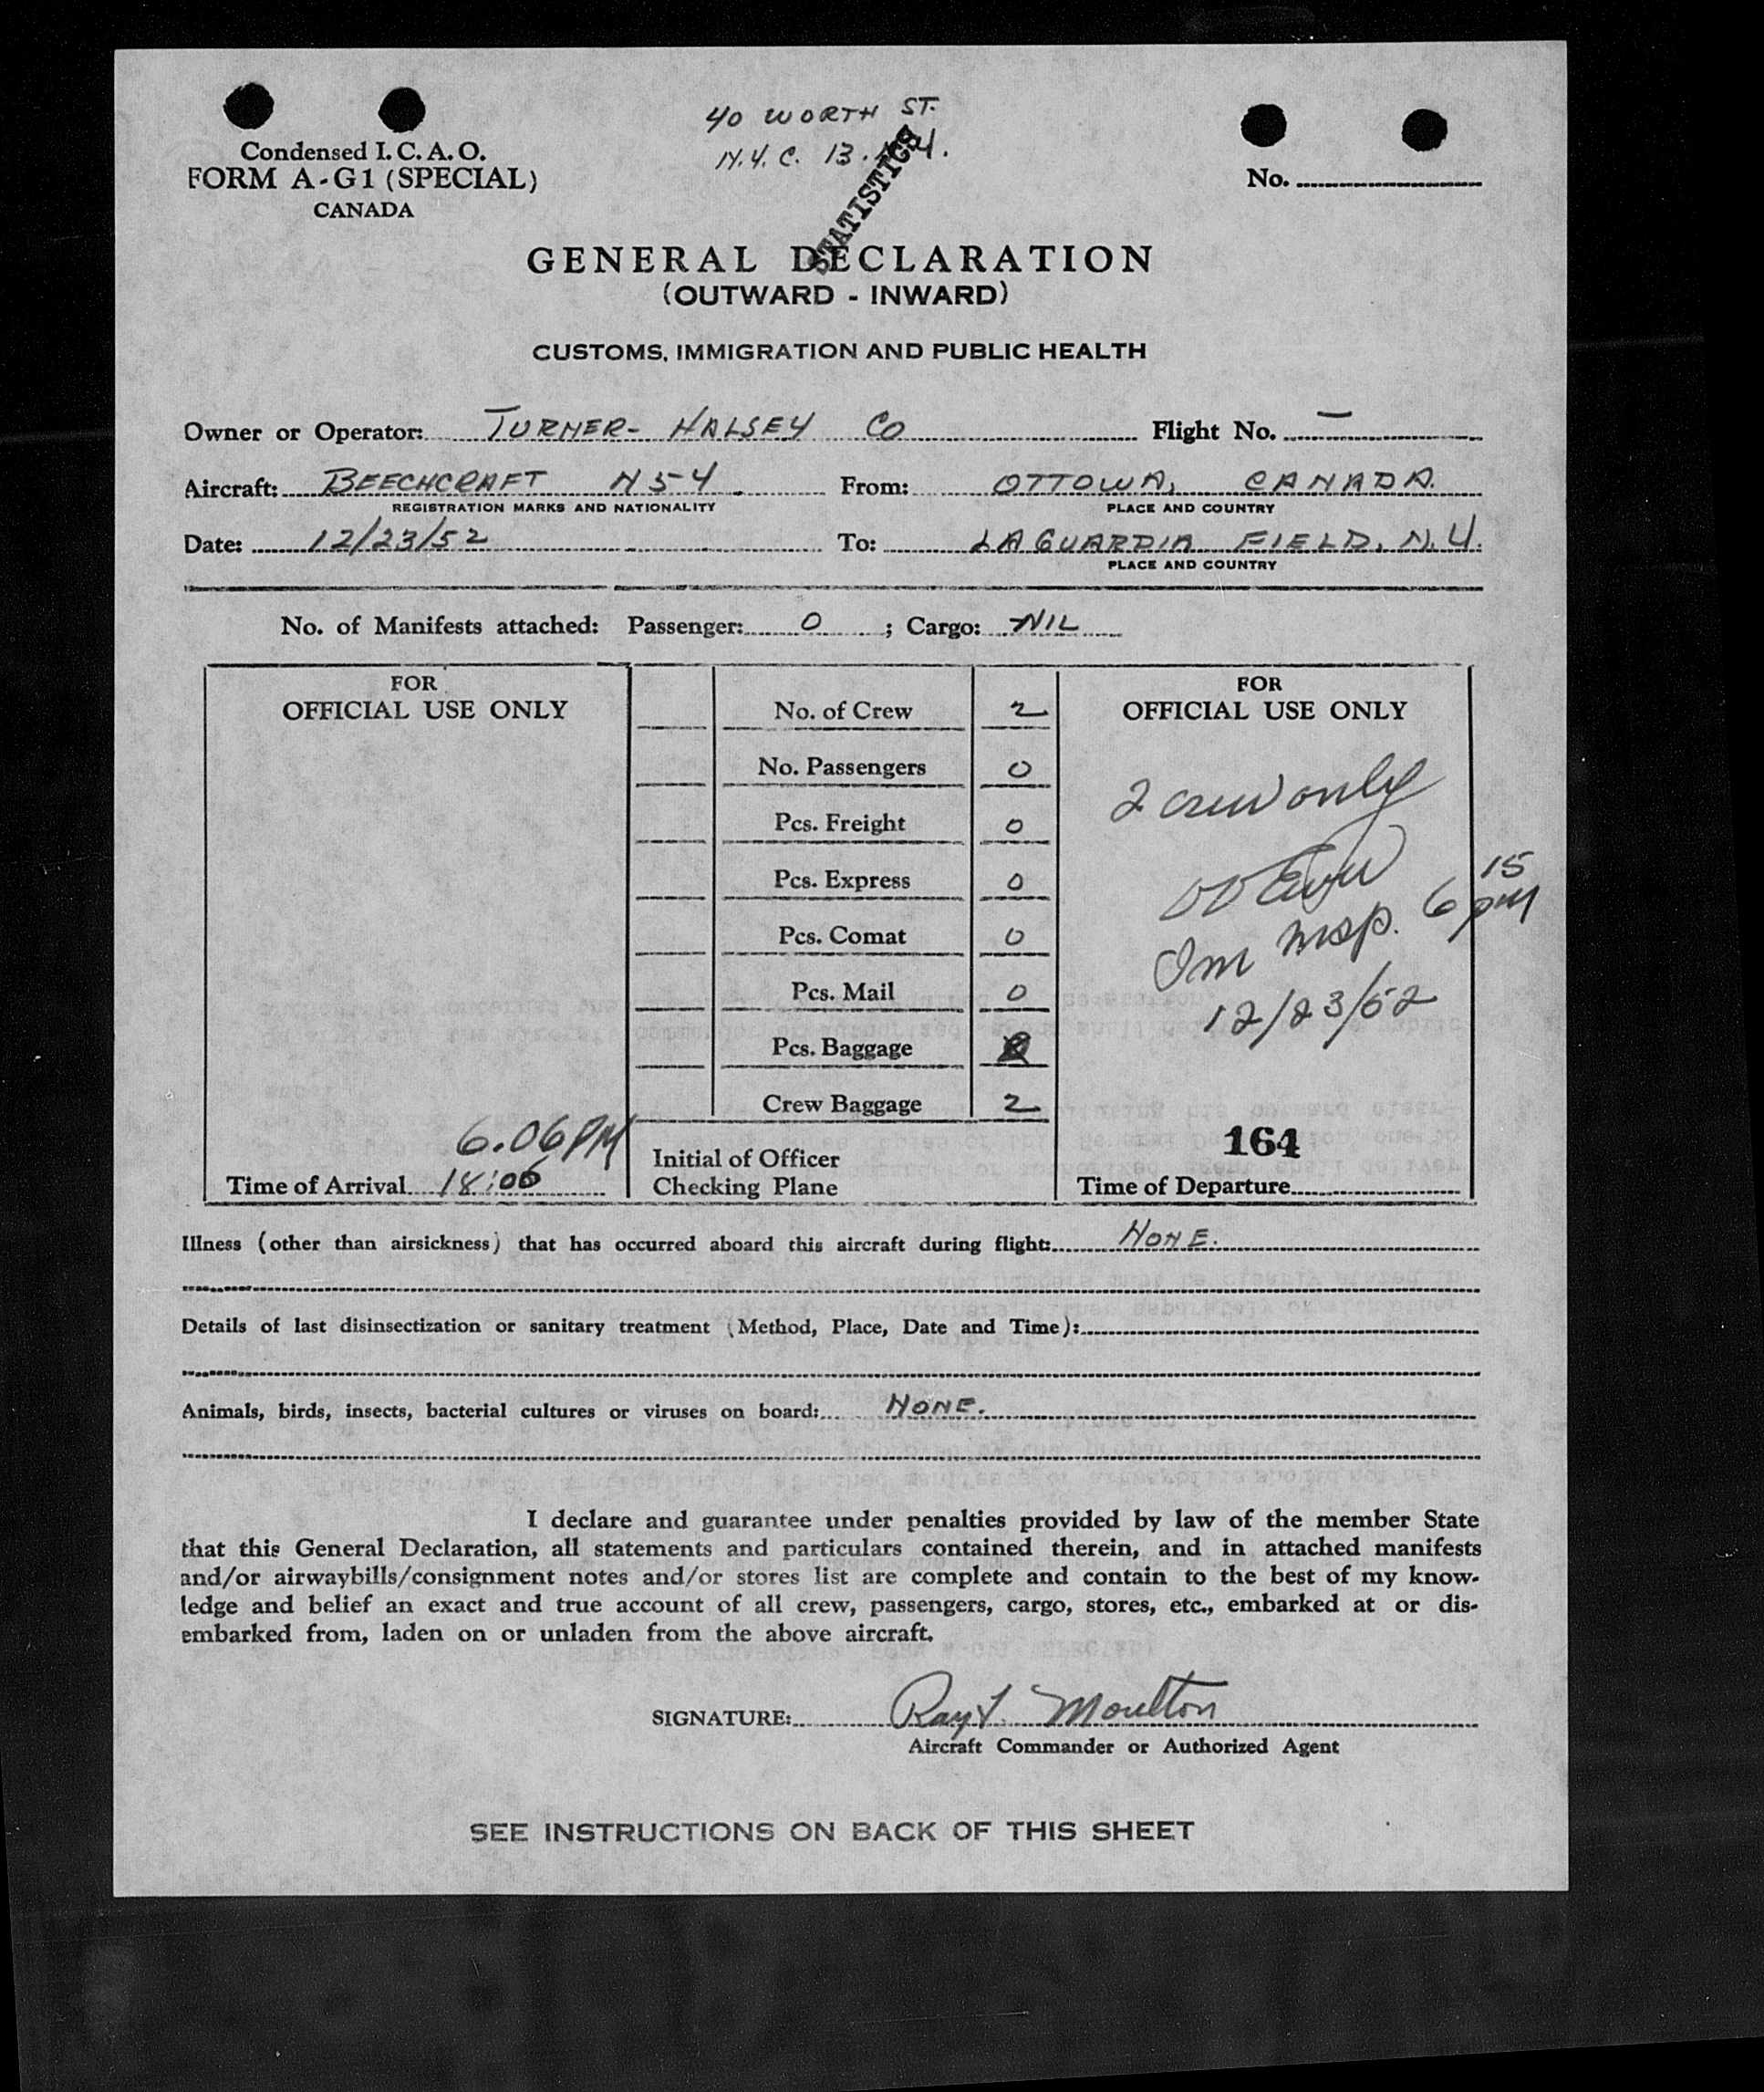 40 WORTH ST.
N.Y.C. 13. N.Y.
STATISTICS
Condensed I. C. A. O.
FORM A-G1 (SPECIAL)
CANADA
No.
GENERAL DECLARATION
(OUTWARD - INWARD)
CUSTOMS, IMMIGRATION AND PUBLIC HEALTH
Owner or Operator: TURNER- HALSEY CO Flight No. —
Aircraft: BEECHCRAFT N54. From: OTTOWA, CANADA.
REGISTRATION MARKS AND NATIONALITY PLACE AND COUNTRY
Date: 12/23/52 To: LAGUARDIA FIELD, N.Y.
PLACE AND COUNTRY
No. of Manifests attached: Passenger: 0 ; Cargo: NIL
FOR
OFFICIAL USE ONLY
6.06 PM
Time of Arrival 18:06
No. of Crew 2
No. Passengers 0
Pcs. Freight 0
Pcs. Express 0
Pcs. Comat 0
Pcs. Mail 0
Pcs. Baggage
Crew Baggage 2
Initial of Officer
Checking Plane
FOR
OFFICIAL USE ONLY
2 crew only
Im Insp. 6 15 pm
12/23/52
164
Time of Departure
Illness (other than airsickness) that has occurred aboard this aircraft during flight: NONE.
Details of last disinsectization or sanitary treatment (Method, Place, Date and Time):
Animals, birds, insects, bacterial cultures or viruses on board: NONE.
I declare and guarantee under penalties provided by law of the member State
that this General Declaration, all statements and particulars contained therein, and in attached manifests
and/or airwaybills/consignment notes and/or stores list are complete and contain to the best of my know-
ledge and belief an exact and true account of all crew, passengers, cargo, stores, etc., embarked at or dis-
embarked from, laden on or unladen from the above aircraft.
SIGNATURE: Ray L. Moulton
Aircraft Commander or Authorized Agent
SEE INSTRUCTIONS ON BACK OF THIS SHEET